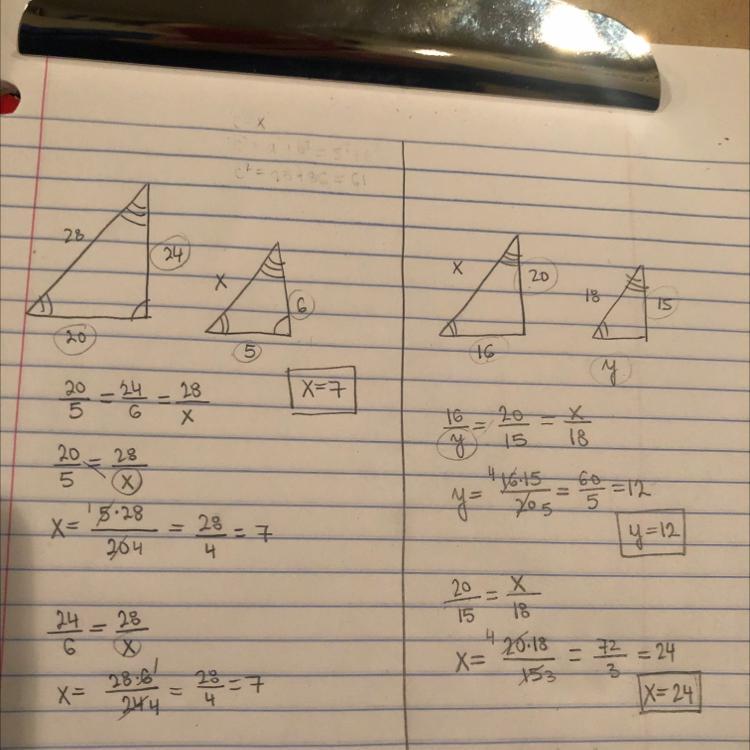 28
24
20
x
6
5
x=7
20/5 = 24/6 = 28/x
20/5 = 28/x
x = 5·28/20 4 = 28/4 = 7
24/6 = 28/x
x = 28·6/24 4 = 28/4 = 7
x
20
16
18
15
y
16/y = 20/15 = x/18
y = 4 16·15/20 5 = 60/5 = 12
y=12
20/15 = x/18
x = 4 20·18/15 3 = 72/3 = 24
x=24